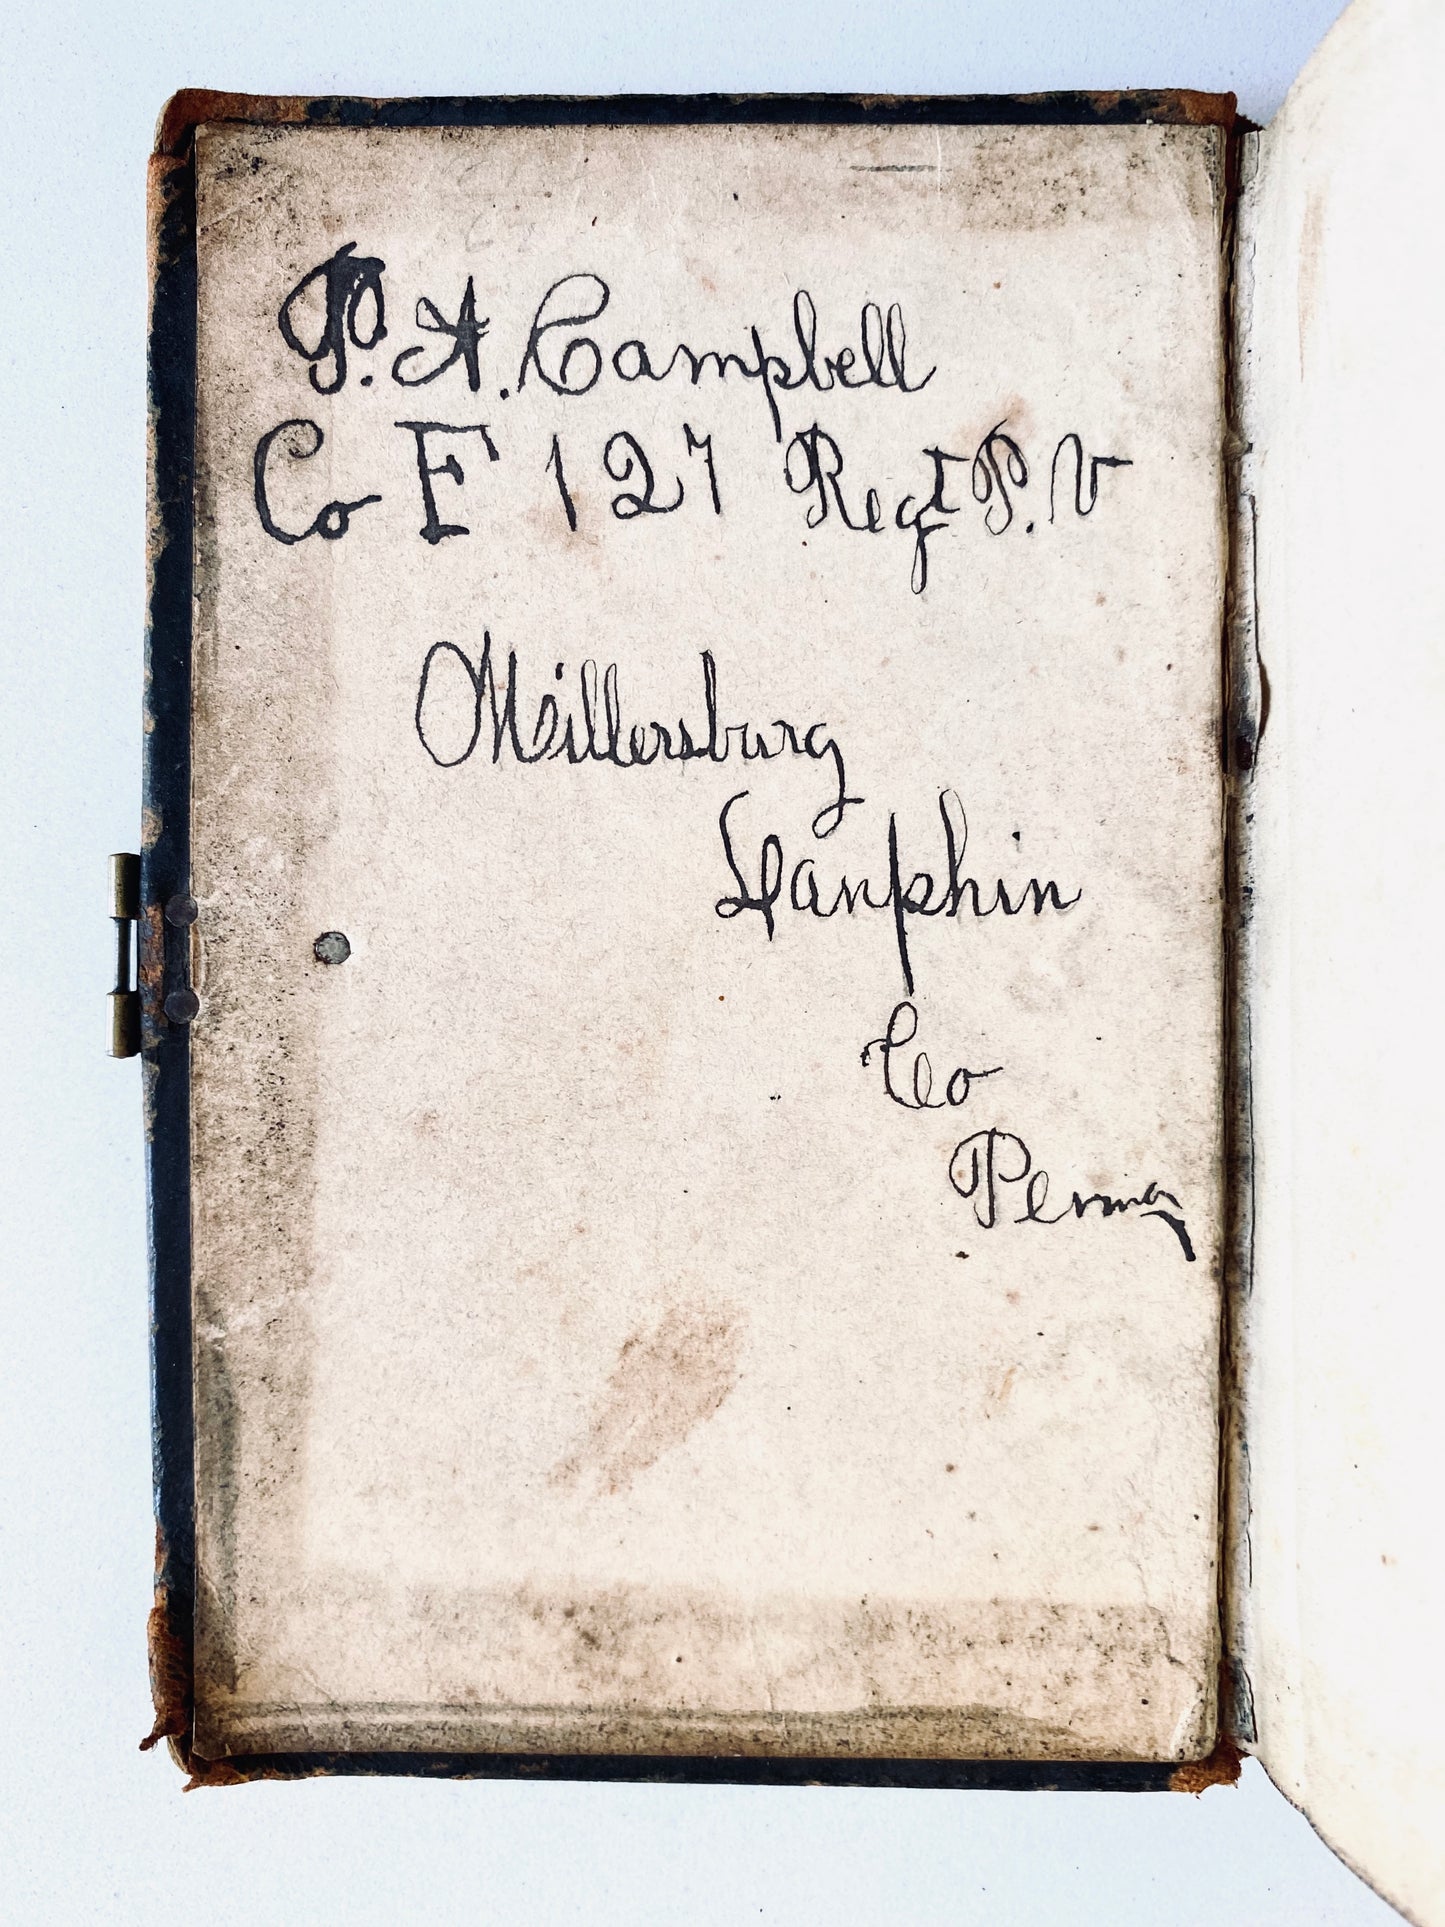 P. A. Campbell
Co F 127 Regt P. V
Millersburg
Dauphin
Co
Penna